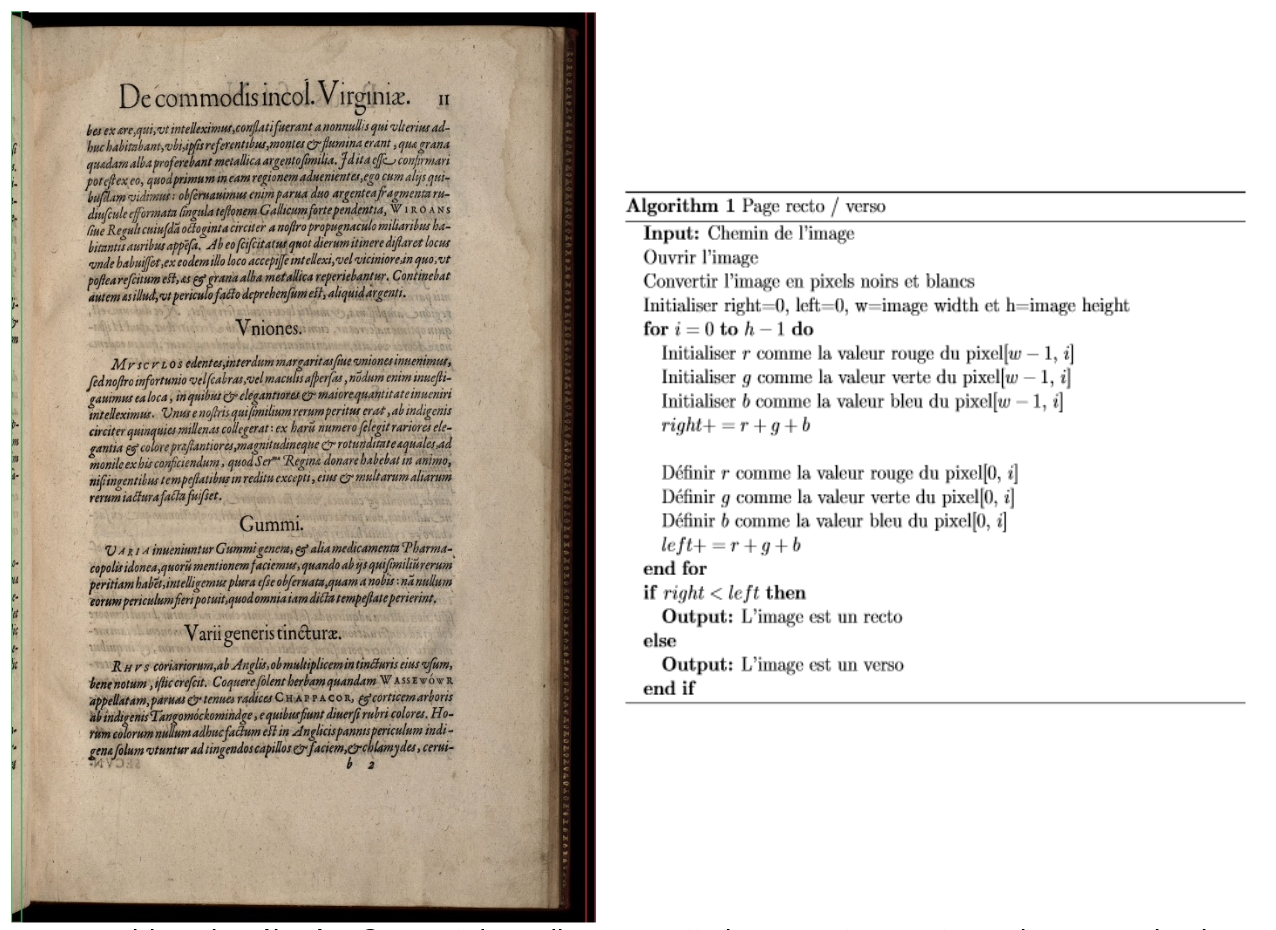 De commodis incol. Virginiæ. 11
bes ex ære, qui, vt intelleximus, conflati fuerant a nonnullis qui vlterius ad-
huc habitabant, vbi, ipsis referentibus, montes & flumina erant, quæ grana
quædam alba proferebant metallica argento similia. Id ita esse confirmari
potest ex eo, quod primum in eam regionem aduenientes, ego cum alijs qui-
busdam vidimus: obseruauimus enim parua duo argentea fragmenta ru-
diuscule efformata singula testonem Gallicum forte pendentia, WIROANS
siue Reguli cuiusdã octoginta circiter a nostro propugnaculo miliaribus ha-
bitantis auribus appēsa. Ab eo sciscitatus quot dierum itinere distaret locus
vnde habuisset, ex eodem illo loco accepisse intellexi, vel viciniore, in quo, vt
postea rescitum est, æs & grana alba metallica reperiebantur. Continebat
autem æs illud, vt periculo facto deprehensum est, aliquid argenti.
Vniones.
MVSCVLOS edentes, interdum margaritas siue vniones inuenimus,
sed nostro infortunio vel scabras, vel maculis aspersas, nõdum enim inuesti-
gauimus ea loca, in quibus & elegantiores & maiore quantitate inueniri
intelleximus. Vnus e nostris qui similium rerum peritus erat, ab indigenis
circiter quinquies millenas collegerat: ex harũ numero selegit rariores ele-
gantia & colore præstantiores, magnitudineque & rotunditate æquales, ad
monile ex his conficiendum, quod Ser.mæ Reginæ donare habebat in animo,
nisi ingentibus tempestatibus in reditu excepti, eius & multarum aliarum
rerum iactura facta fuisset.
Gummi.
VARIA inueniuntur Gummi genera, & alia medicamenta Pharma-
copolis idonea, quorũ mentionem faciemus, quando ab ijs qui similiũ rerum
peritiam habẽt, intelligemus plura esse obseruata, quam a nobis: nã nullum
eorum periculum fieri potuit, quod omnia iam dicta tempestate perierint.
Varii generis tincturæ.
RHVS coriariorum, ab Anglis, ob multiplicem in tincturis eius vsum,
bene notum, istic crescit. Coquere solent herbam quandam WASSEWÓWR
appellatam, paruas & tenues radices CHAPPACOR, & corticem arboris
ab indigenis Tangomóckomindge, e quibus fiunt diuersi rubri colores. Ho-
rum colorum nullum adhuc factum est in Anglicis pannis periculum indi-
genæ solum vtuntur ad tingendos capillos & faciem, & chlamydes, cerui-
b 2
Algorithm 1 Page recto / verso
Input: Chemin de l'image
Ouvrir l'image
Convertir l'image en pixels noirs et blancs
Initialiser right=0, left=0, w=image width et h=image height
for i = 0 to h − 1 do
Initialiser r comme la valeur rouge du pixel[w − 1, i]
Initialiser g comme la valeur verte du pixel[w − 1, i]
Initialiser b comme la valeur bleu du pixel[w − 1, i]
right+ = r + g + b
Définir r comme la valeur rouge du pixel[0, i]
Définir g comme la valeur verte du pixel[0, i]
Définir b comme la valeur bleu du pixel[0, i]
left+ = r + g + b
end for
if right < left then
Output: L'image est un recto
else
Output: L'image est un verso
end if